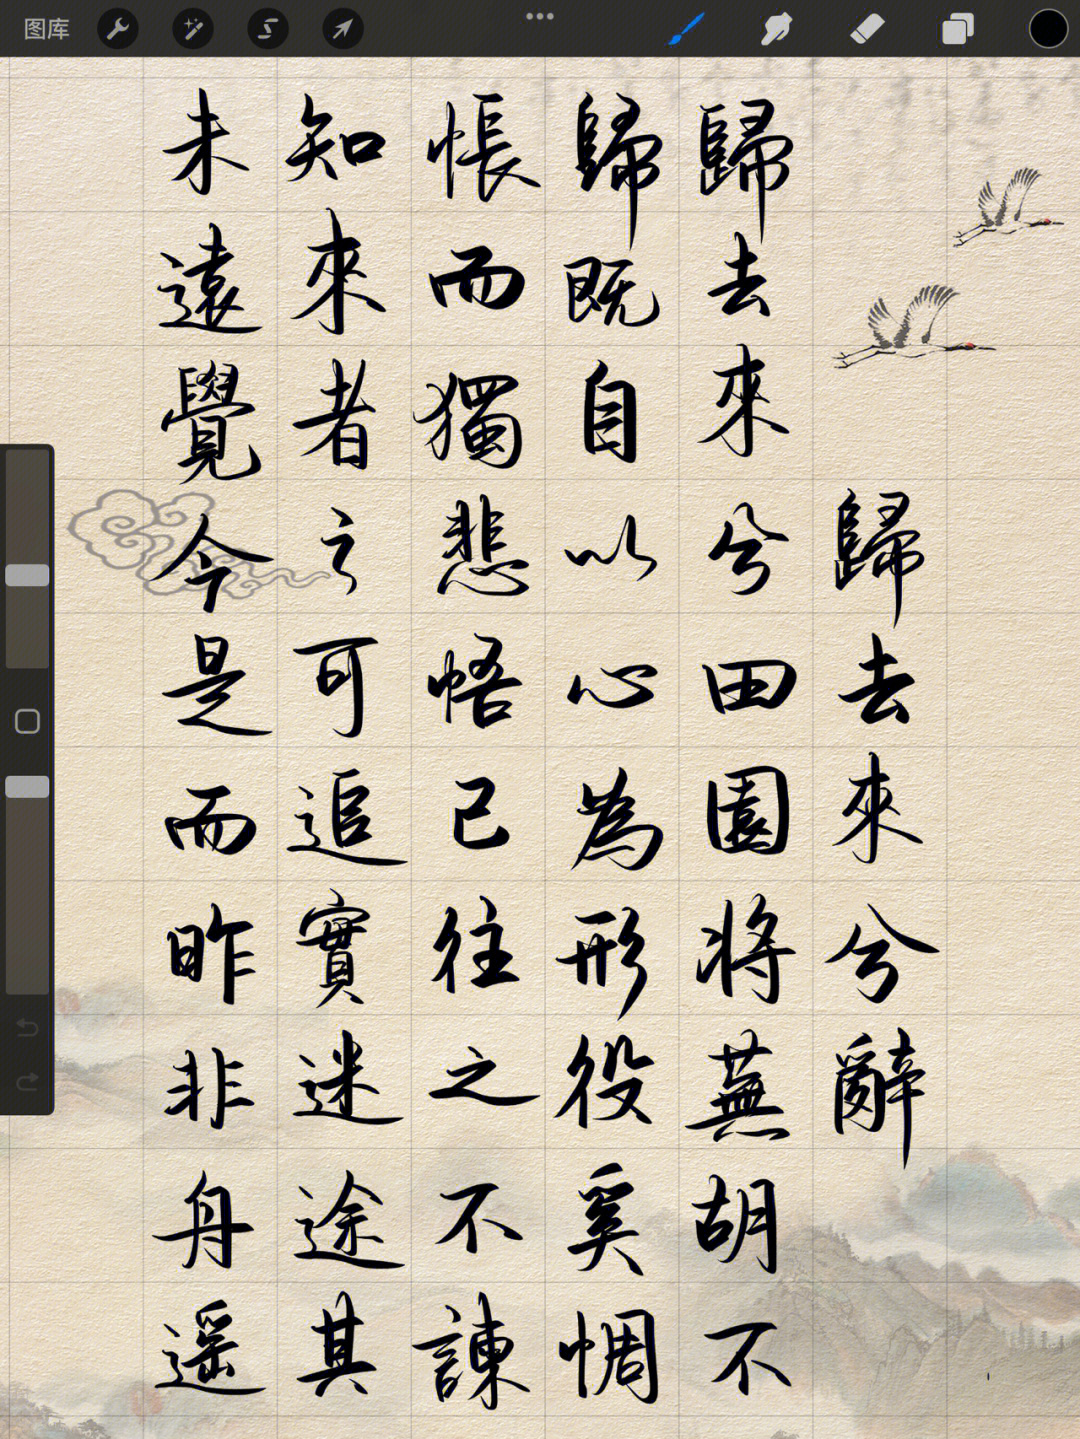 图库
歸去來兮辭
歸去來兮田園将蕪胡不
歸既自以心為形役奚惆
悵而獨悲悟已往之不諫
知來者之可追實迷途其
未遠覺今是而昨非舟遥